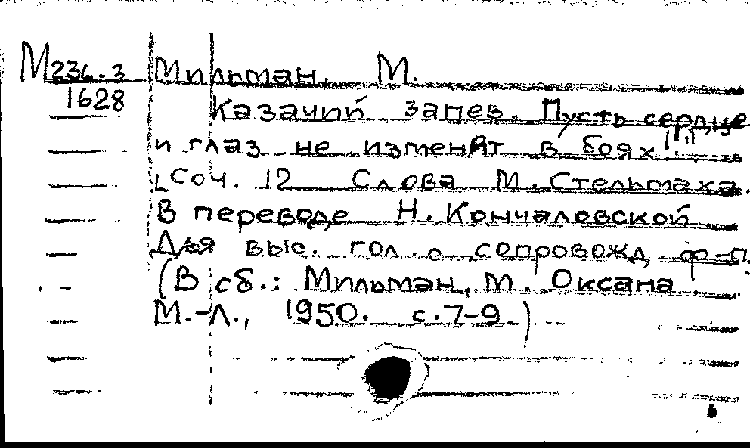 М236.3 Мильман, М.
1628 Казачий запев. "Пусть сердце
и глаз не изменят в боях!.."
Соч. 12 Слова М. Стельмаха.
В переводе Н. Кончаловской
Для выс. гол. с сопровожд. ф-п.
(В сб.: Мильман, М. Оксана
М.-Л., 1950. с. 7-9.)